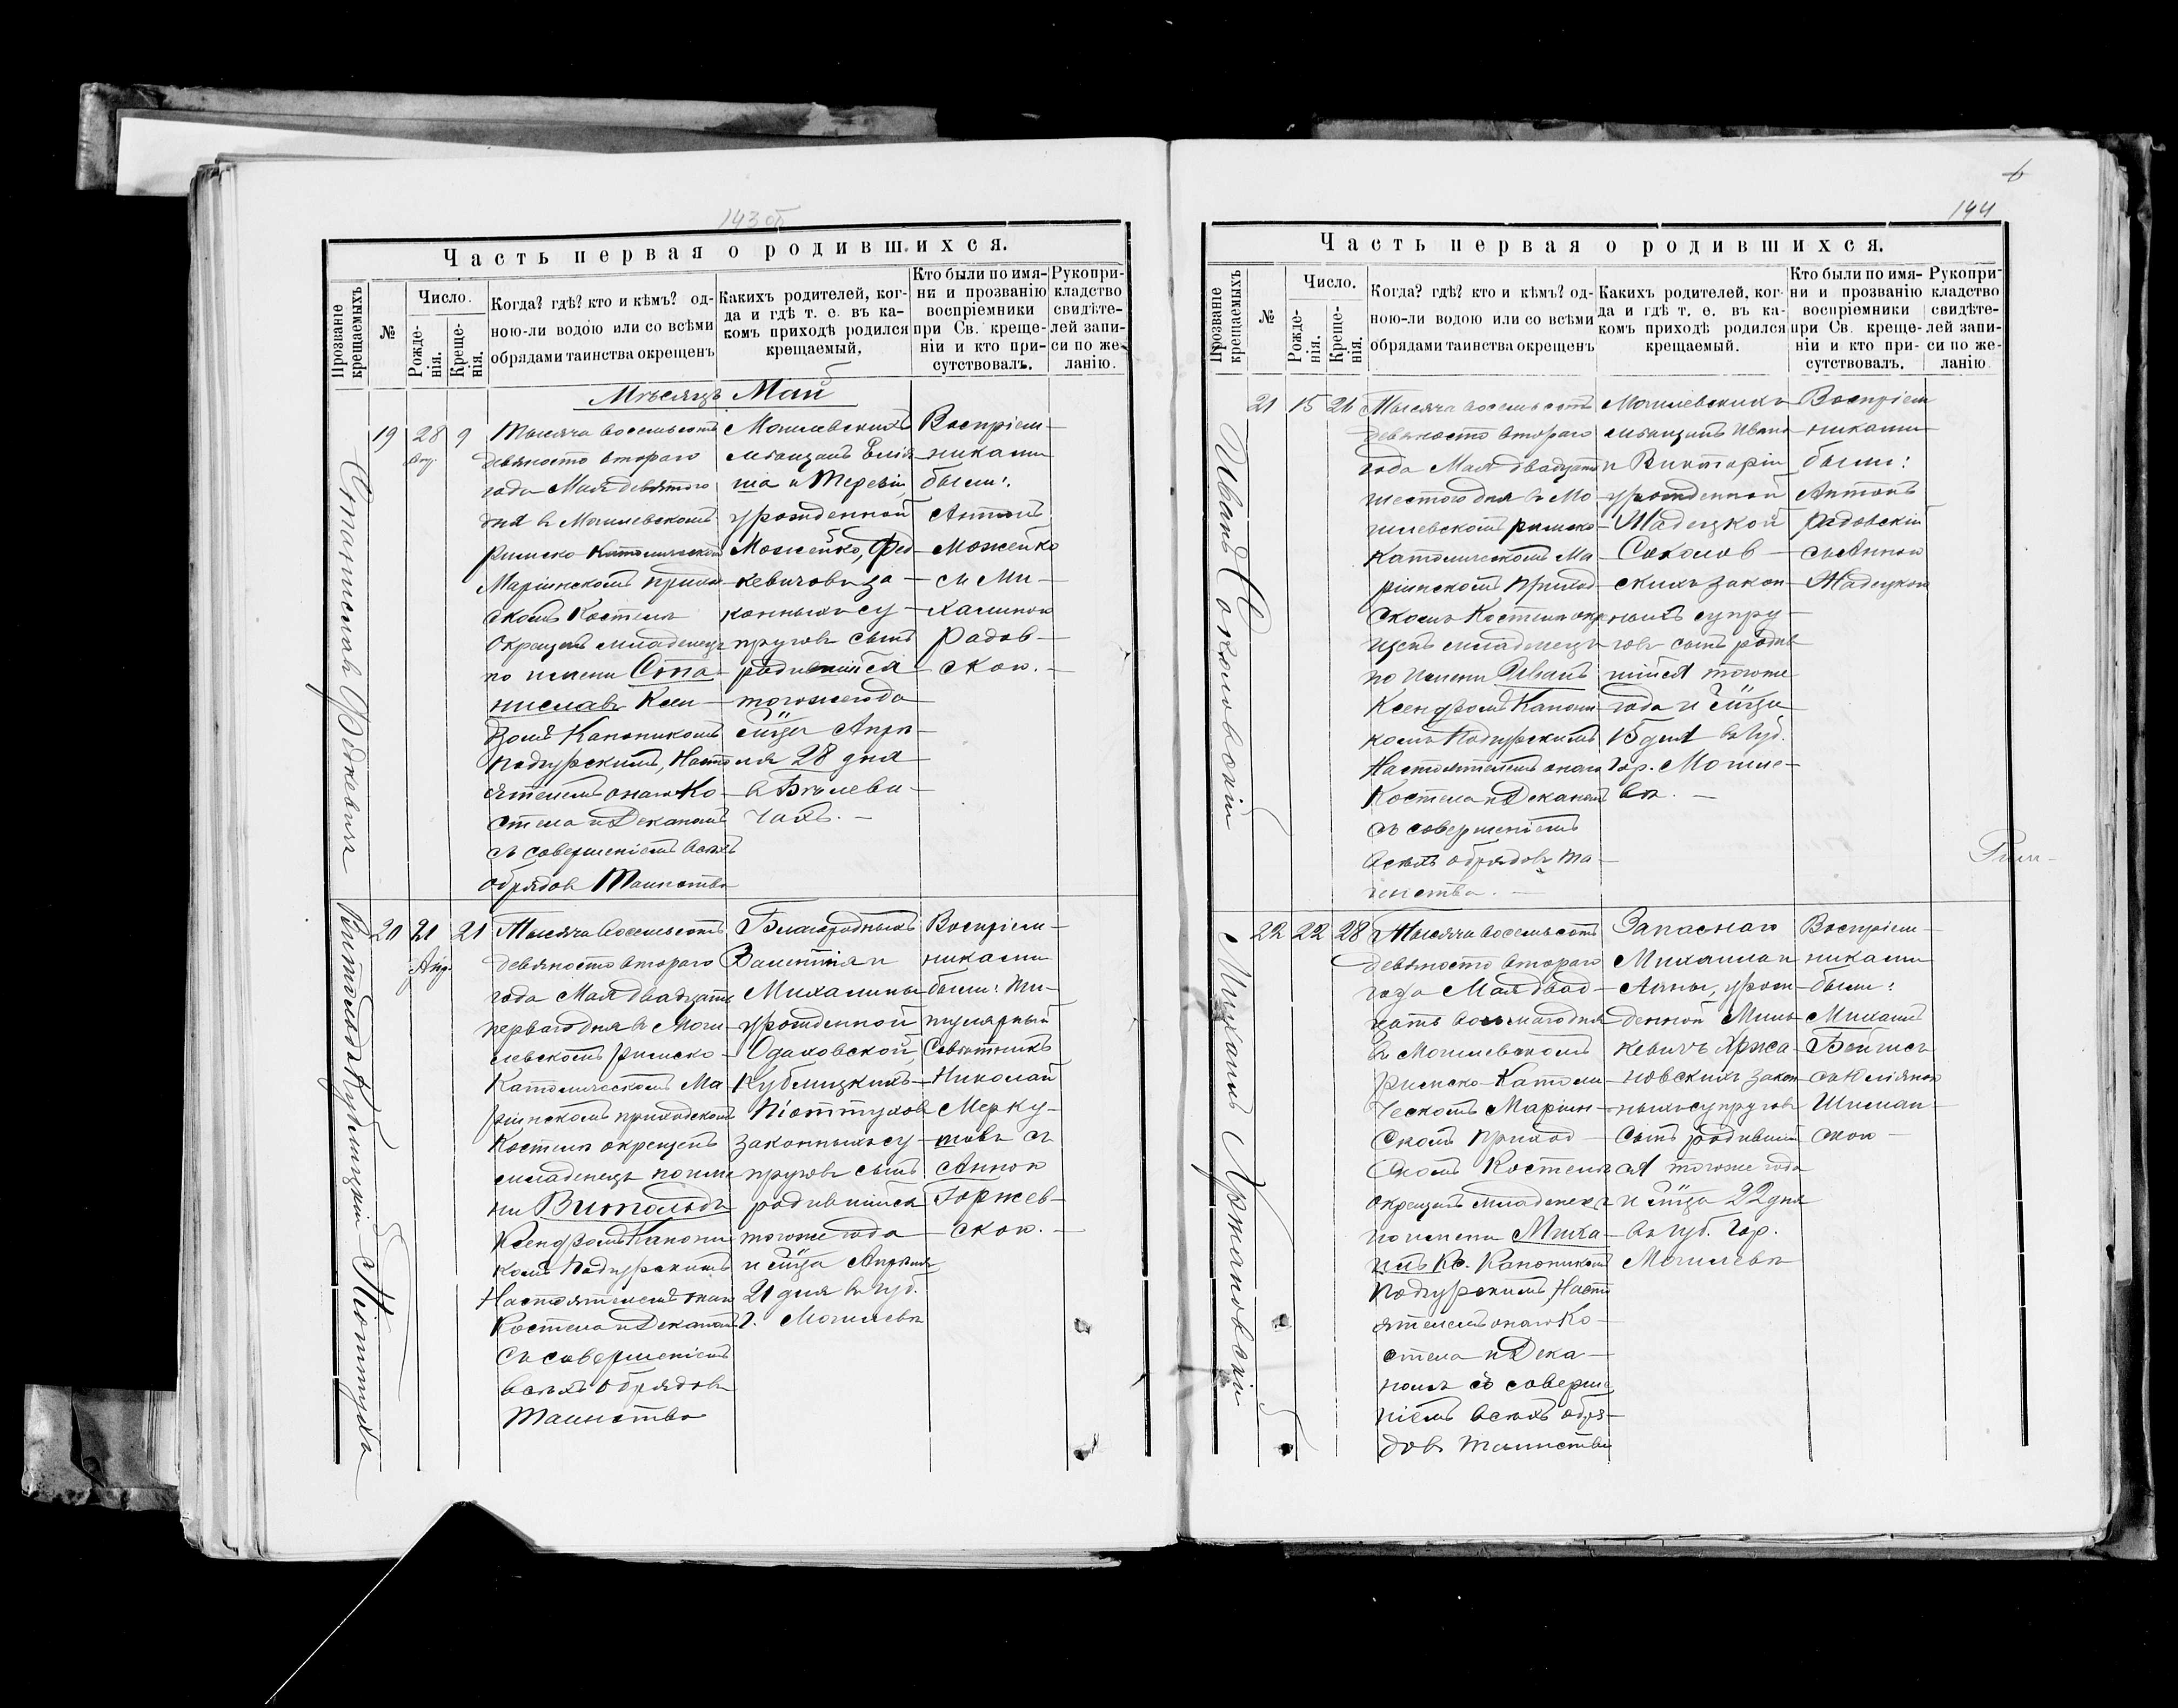 143 об
Часть первая о родившихся.
Прозваніе крещаемыхъ
№
Число.
Рожде-
нія.
Креще-
нія.
Когда? гдѣ? кто и кѣмъ? од-
ною-ли водою или со всѣми
обрядами таинства окрещенъ
Какихъ родителей, ког-
да и гдѣ т. е. въ ка-
комъ приходѣ родился
крещаемый,
Кто были по имя-
ни и прозванію
воспріемники
при Св. креще-
ніи и кто при-
сутствовалъ.
Рукопри-
кладство
свидѣте-
лей запи-
си по же-
ланію.
Мѣсяцъ Май
Станиславъ Федкевичъ
19
28
9
Тысяча восемьсотъ
девяносто втораго
года Мая девятого
дня въ Могилевскомъ
римско-Католическомъ
Маріинскомъ прихо-
дскомъ Костелѣ
окрещенъ младенецъ
по имени Ста-
ниславъ Ксен-
дзомъ Каноникомъ
Подгурскимъ, Насто-
ятелемъ онаго Ко-
стела и Деканомъ
съ совершеніемъ всѣхъ
обрядовъ Таинства
Могилевскихъ
мѣщанъ
и Терезіи,
урожденной
Можейко, Фед-
кевичовъ за-
конныхъ су-
пруговъ сынъ
родившійся
тогоже года
м̃ца Апрѣ-
ля 28 дня
въ Бѣлеви-
чахъ. —
Воспріем-
никами
были:
Антонъ
Можейко
съ Ми-
халиною
Радов-
скою. —
Витольдъ Кублицкій-Піоттухъ
20
21
Апр.
21
Тысяча восемьсотъ
девяносто втораго
года Мая двадцать
перваго дня въ Моги-
левскомъ римско-
Католическомъ Ма-
ріинскомъ приходскомъ
Костелѣ окрещенъ
младенецъ по име-
ни Витольдъ
Ксендзомъ Канони-
комъ Подгурскимъ
Настоятелемъ онаго
Костела и Деканомъ
съ совершеніемъ
всѣхъ обрядовъ
Таинства
Благородныхъ
Валентія и
Михалины
урожденной
Одаховской
Кублицкихъ-
Піоттуховъ
законныхъ су-
пруговъ сынъ
родившійся
тогоже года
и м̃ца Апрѣля
21 дня въ губ.
г. Могилевѣ
Воспріем-
никами
были: Ти-
тулярный
Совѣтникъ
Николай
Мерку-
ловъ съ
Анною
Горжев-
скою. —
144
Часть первая о родившихся.
Прозваніе крещаемыхъ
№
Число.
Рожде-
нія.
Креще-
нія.
Когда? гдѣ? кто и кѣмъ? од-
ною-ли водою или со всѣми
обрядами таинства окрещенъ
Какихъ родителей, ког-
да и гдѣ т. е. въ ка-
комъ приходѣ родился
крещаемый.
Кто были по имя-
ни и прозванію
воспріемники
при Св. креще-
ніи и кто при-
сутствовалъ.
Рукопри-
кладство
свидѣте-
лей запи-
си по же-
ланію
Иванъ Соколовскій
21
15
26
Тысяча восемьсотъ
девяносто втораго
года Мая двадцать
шестого дня въ Мо-
гилевскомъ римско-
Католическомъ Ма-
ріинскомъ Приход-
скомъ Костелѣ окре-
щенъ младенецъ
по имени Иванъ
Ксендзомъ Канони-
комъ Подгурскимъ
Настоятелемъ онаго
Костела и Деканомъ
съ совершеніемъ
всѣхъ обрядовъ та-
инства. —
Могилевскихъ
мѣщанъ Ивана
и Викторіи
урожденной
Жадецкой
Соколов-
скихъ закон-
ныхъ супру-
говъ сынъ родив-
шійся тогоже
года и м̃ца
15 дня въ губ.
гор. Могиле-
вѣ. —
Воспріем-
никами
были:
Антонъ
Радовскій
съ Анною
Жадецкою
Михаилъ Хржановскій
22
22
28
Тысяча восемьсотъ
девяносто втораго
года Мая двад-
цать восьмаго дня
въ Могилевскомъ
римско-Католи-
ческомъ Маріин-
скомъ Приход-
скомъ Костелѣ
окрещенъ младенецъ
по имени Миха-
илъ Кс. Каноникомъ
Подгурскимъ, Насто-
ятелемъ онаго Ко-
стела и Дека-
номъ со соверше-
ніемъ всѣхъ обря-
довъ таинства
Запаснаго
Михаила и
Анны, урож-
денной Миць-
кевичъ Хржа-
новскихъ закон-
ныхъ супруговъ
сынъ родивший-
ся тогоже года
и м̃ца 22 дня
въ губ. гор.
Могилевѣ
Воспріем-
никами
были:
Михаилъ
Бейнисъ
съ Юліяною
Шиман-
скою —